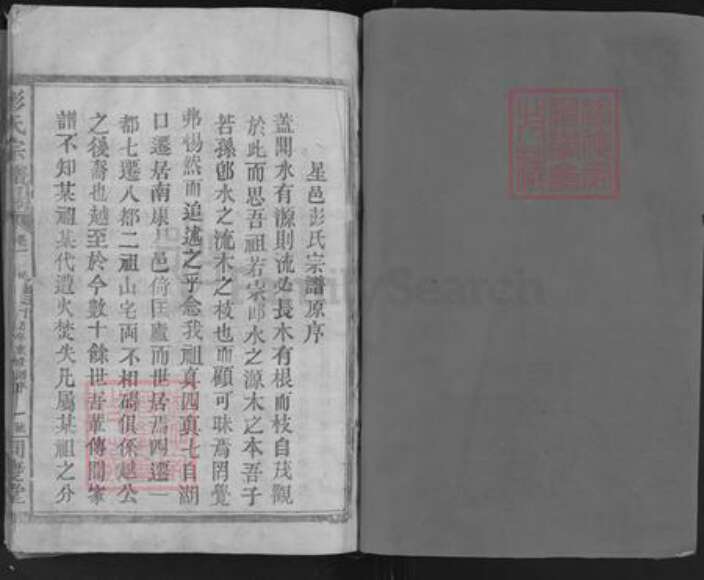 星邑彭氏宗譜原序
蓋聞水有源則流必長木有根而枝自茂觀
於此而思吾祖若宗卽水之源木之本吾子
若孫卽水之流木之枝也而顧可昧焉罔覺
弗惕然而追遠之乎念我祖真四真七自湖
口遷居南康星邑倚匡廬而世居焉四遷一
都七遷八都二祖山宅両不相礙俱係越公
之後裔也越至於今數十餘世吾輩傳聞家
譜不知某祖某代遭火焚失凡屬某祖之分
彭氏宗譜
卷一
FamilySearch